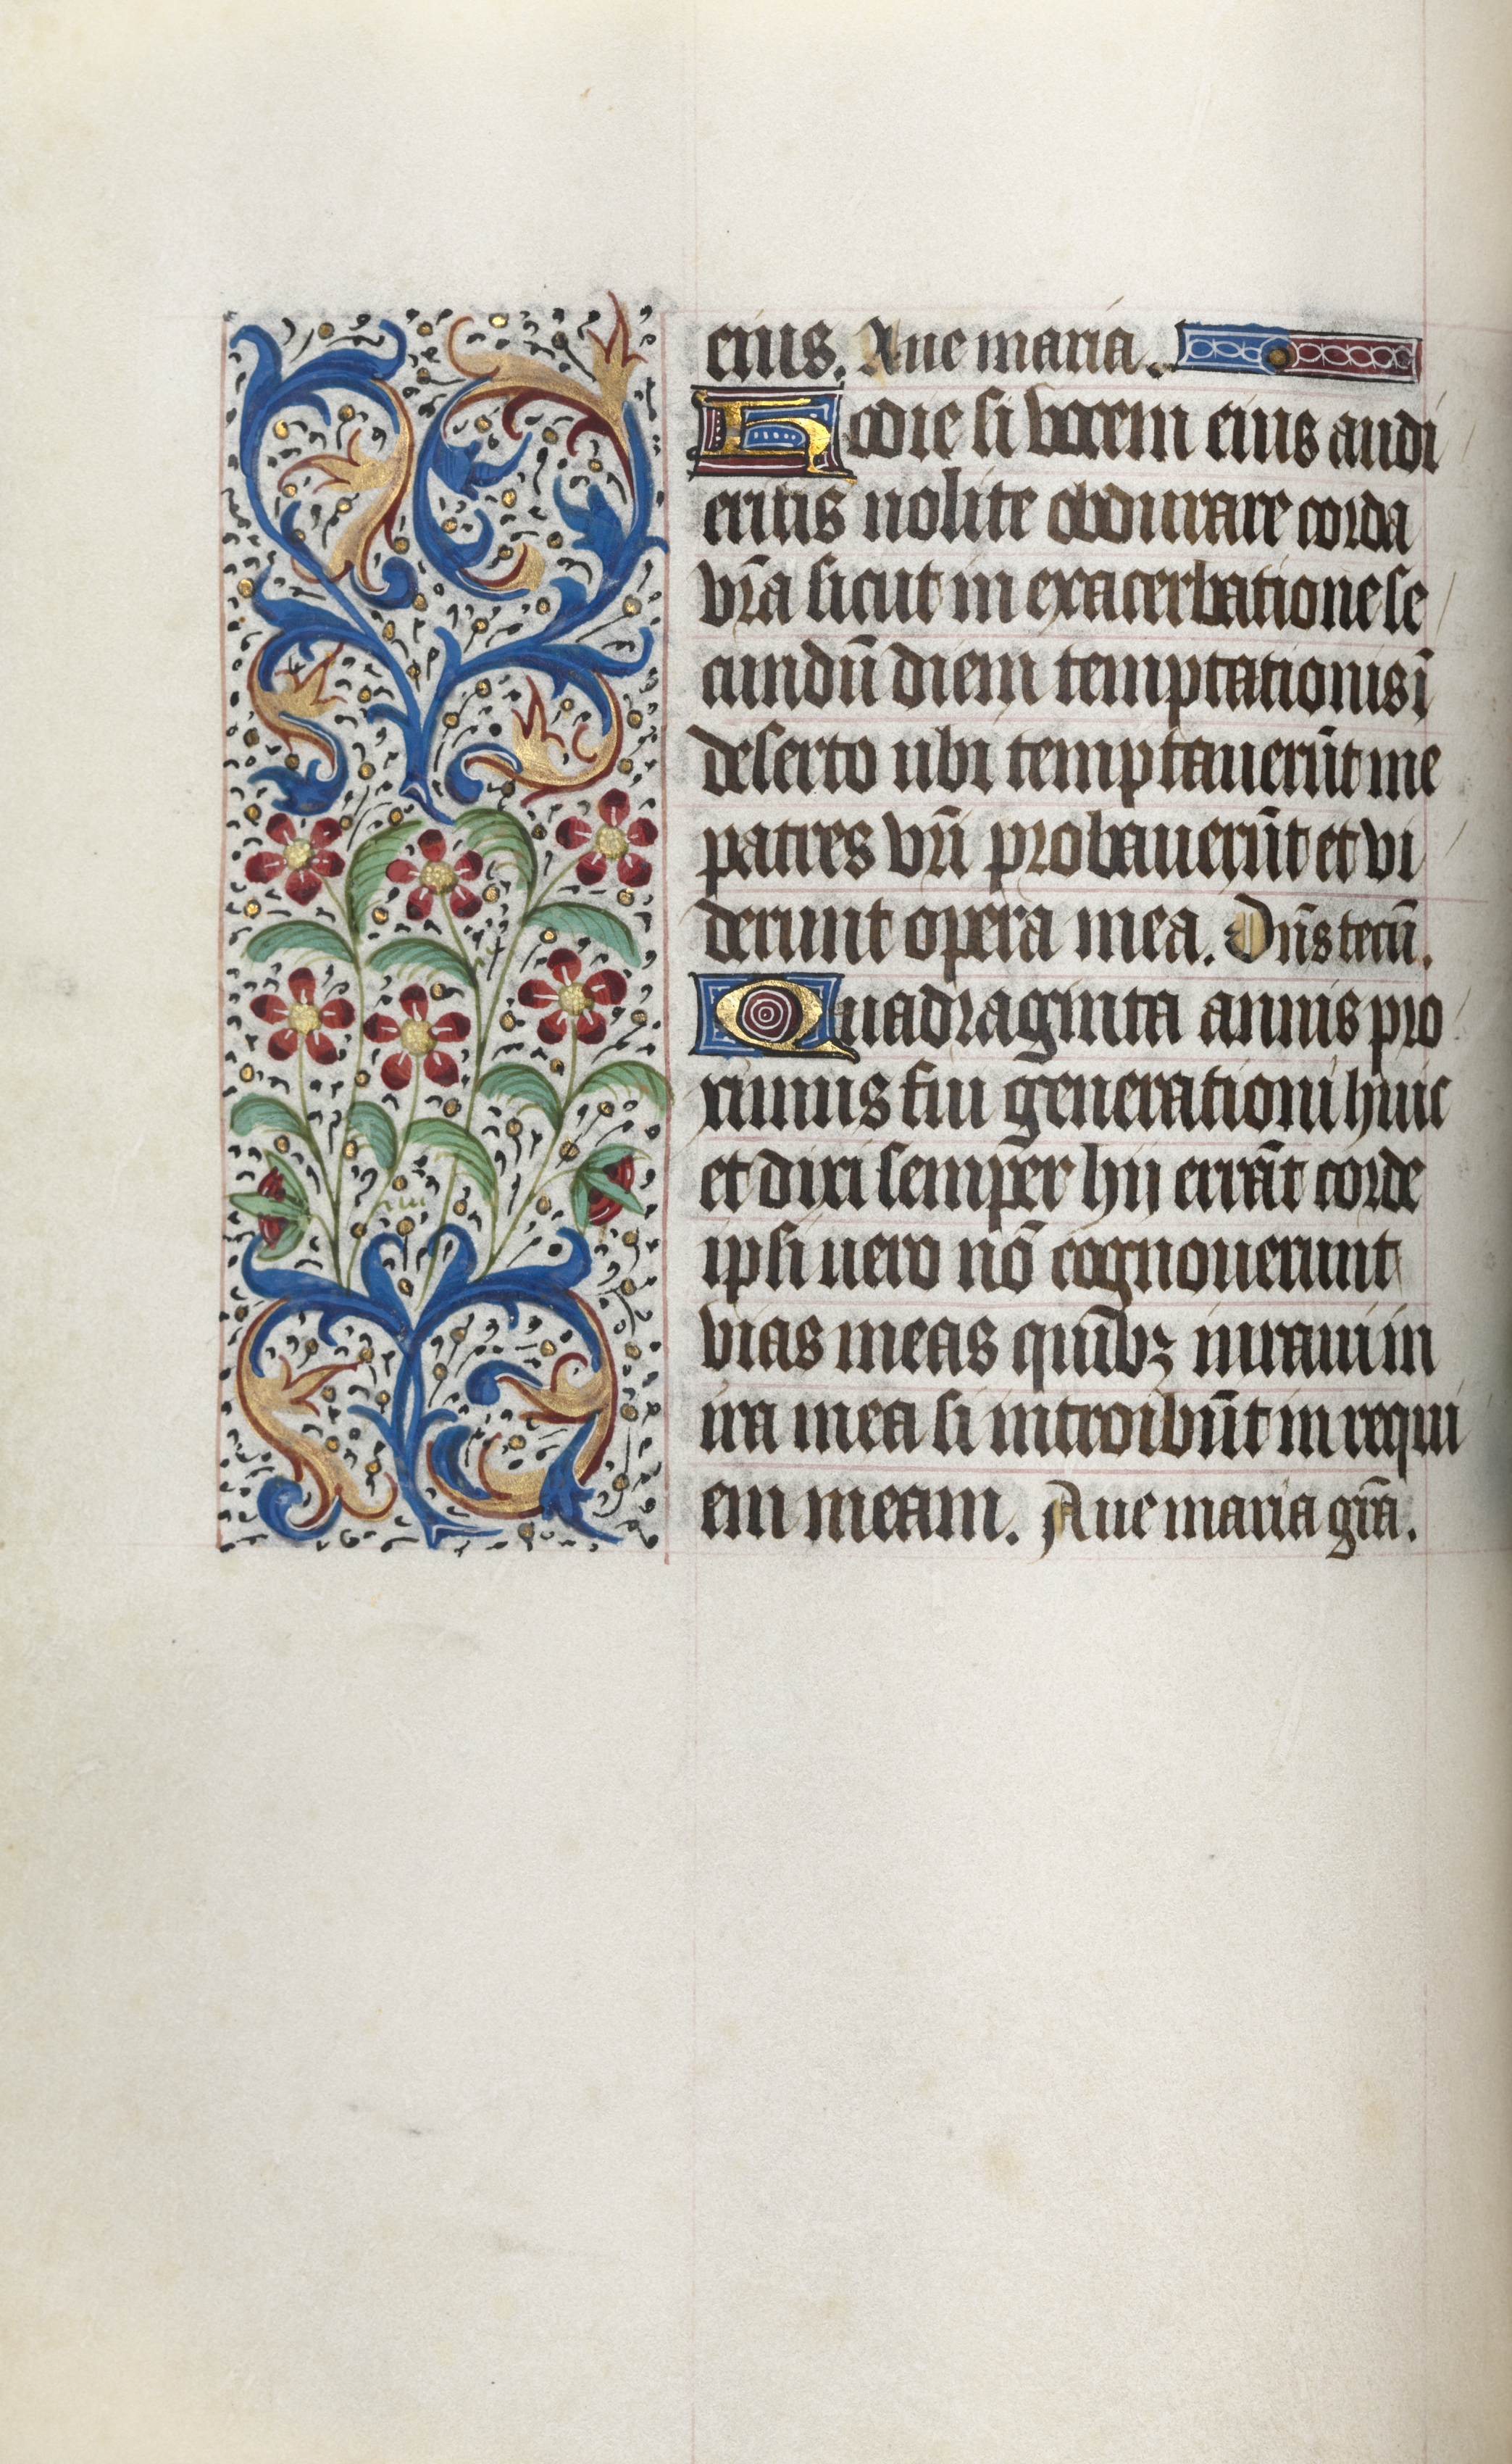 eius. Aue maria.
Hodie si vocem eius audi
eritis nolite obdurare corda
vr̃a sicut in exacerbatione se
cundũ diem temptationis ĩ
deserto ubi temptauerũt me
patres vr̃i probauerũt et vi
derunt opera mea. Dñs tecũ.
Quadraginta annis pro
ximus fui generationi huic
et dixi semper hij errãt corde
ipsi uero nõ cognouerunt
vias meas quibꝫ iuraui in
ira mea si introibũt in requi
em meam. Aue maria gr̃a.